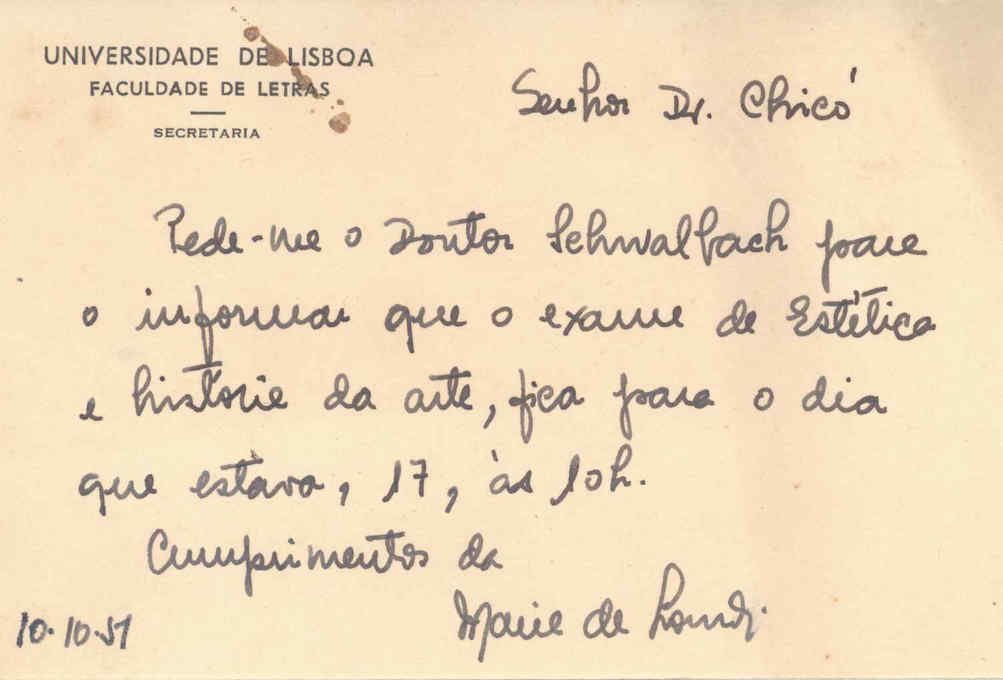 UNIVERSIDADE DE LISBOA
FACULDADE DE LETRAS
SECRETARIA
Senhor Dr. Chicó
Pede-me o Doutor Schwalbach para
o informar que o exame de Estética
e história da arte, fica para o dia
que estava, 17, às 10h.
Cumprimentos da
Maria de
10-10-51